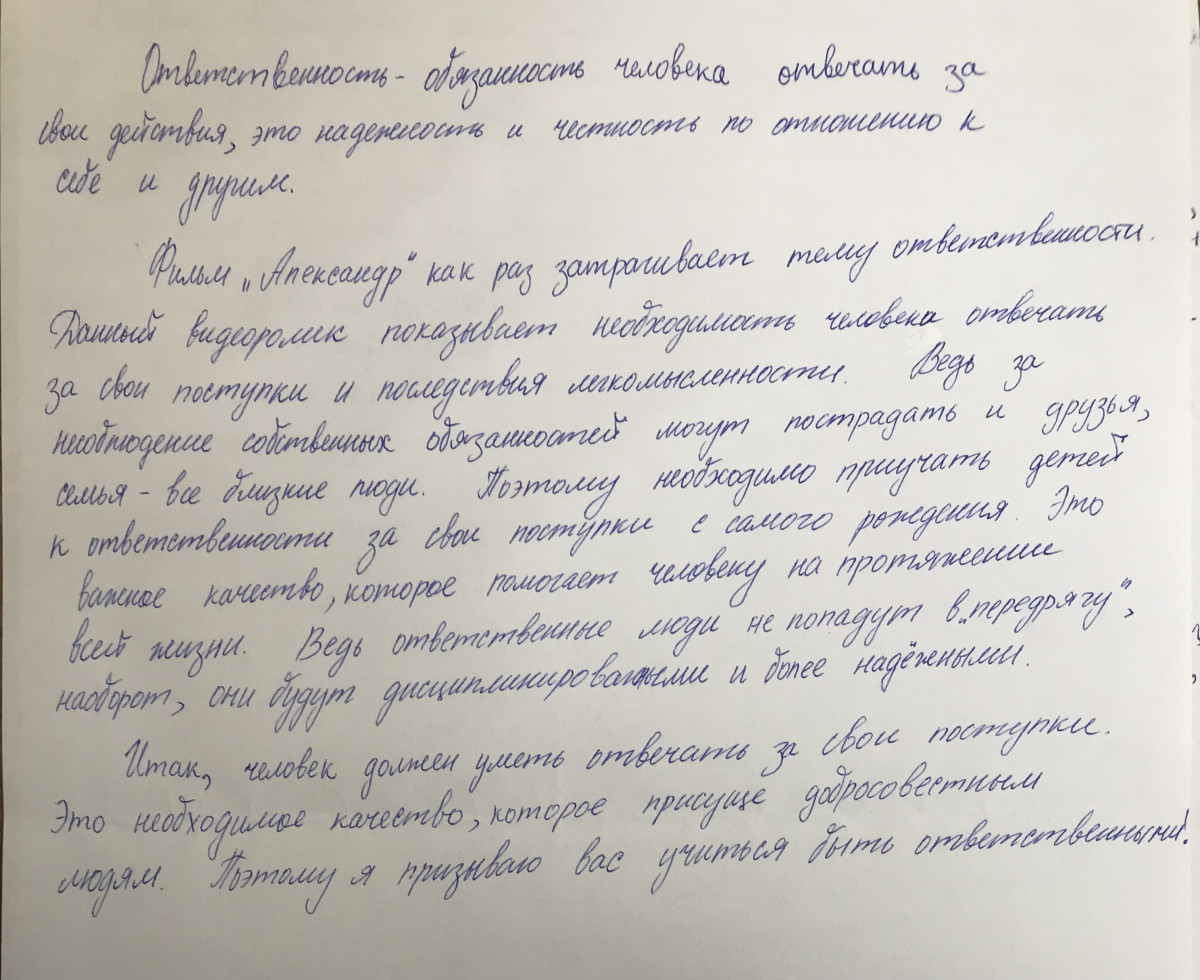 Ответственность - обязанность человека отвечать за
свои действия, это надежность и честность по отношению к
себе и другим.
Фильм „Александр" как раз затрагивает тему ответственности.
Данный видеоролик показывает необходимость человека отвечать
за свои поступки и последствия легкомысленности. Ведь за
несоблюдение собственных обязанностей могут пострадать и друзья,
семья - все близкие люди. Поэтому необходимо приучать детей
к ответственности за свои поступки с самого рождения. Это
важное качество, которое помогает человеку на протяжении
всей жизни. Ведь ответственные люди не попадут в „передрягу",
наоборот, они будут дисциплинированными и более надёжными.
Итак, человек должен уметь отвечать за свои поступки.
Это необходимое качество, которое присуще добросовестным
людям. Поэтому я призываю вас учиться быть ответственными!